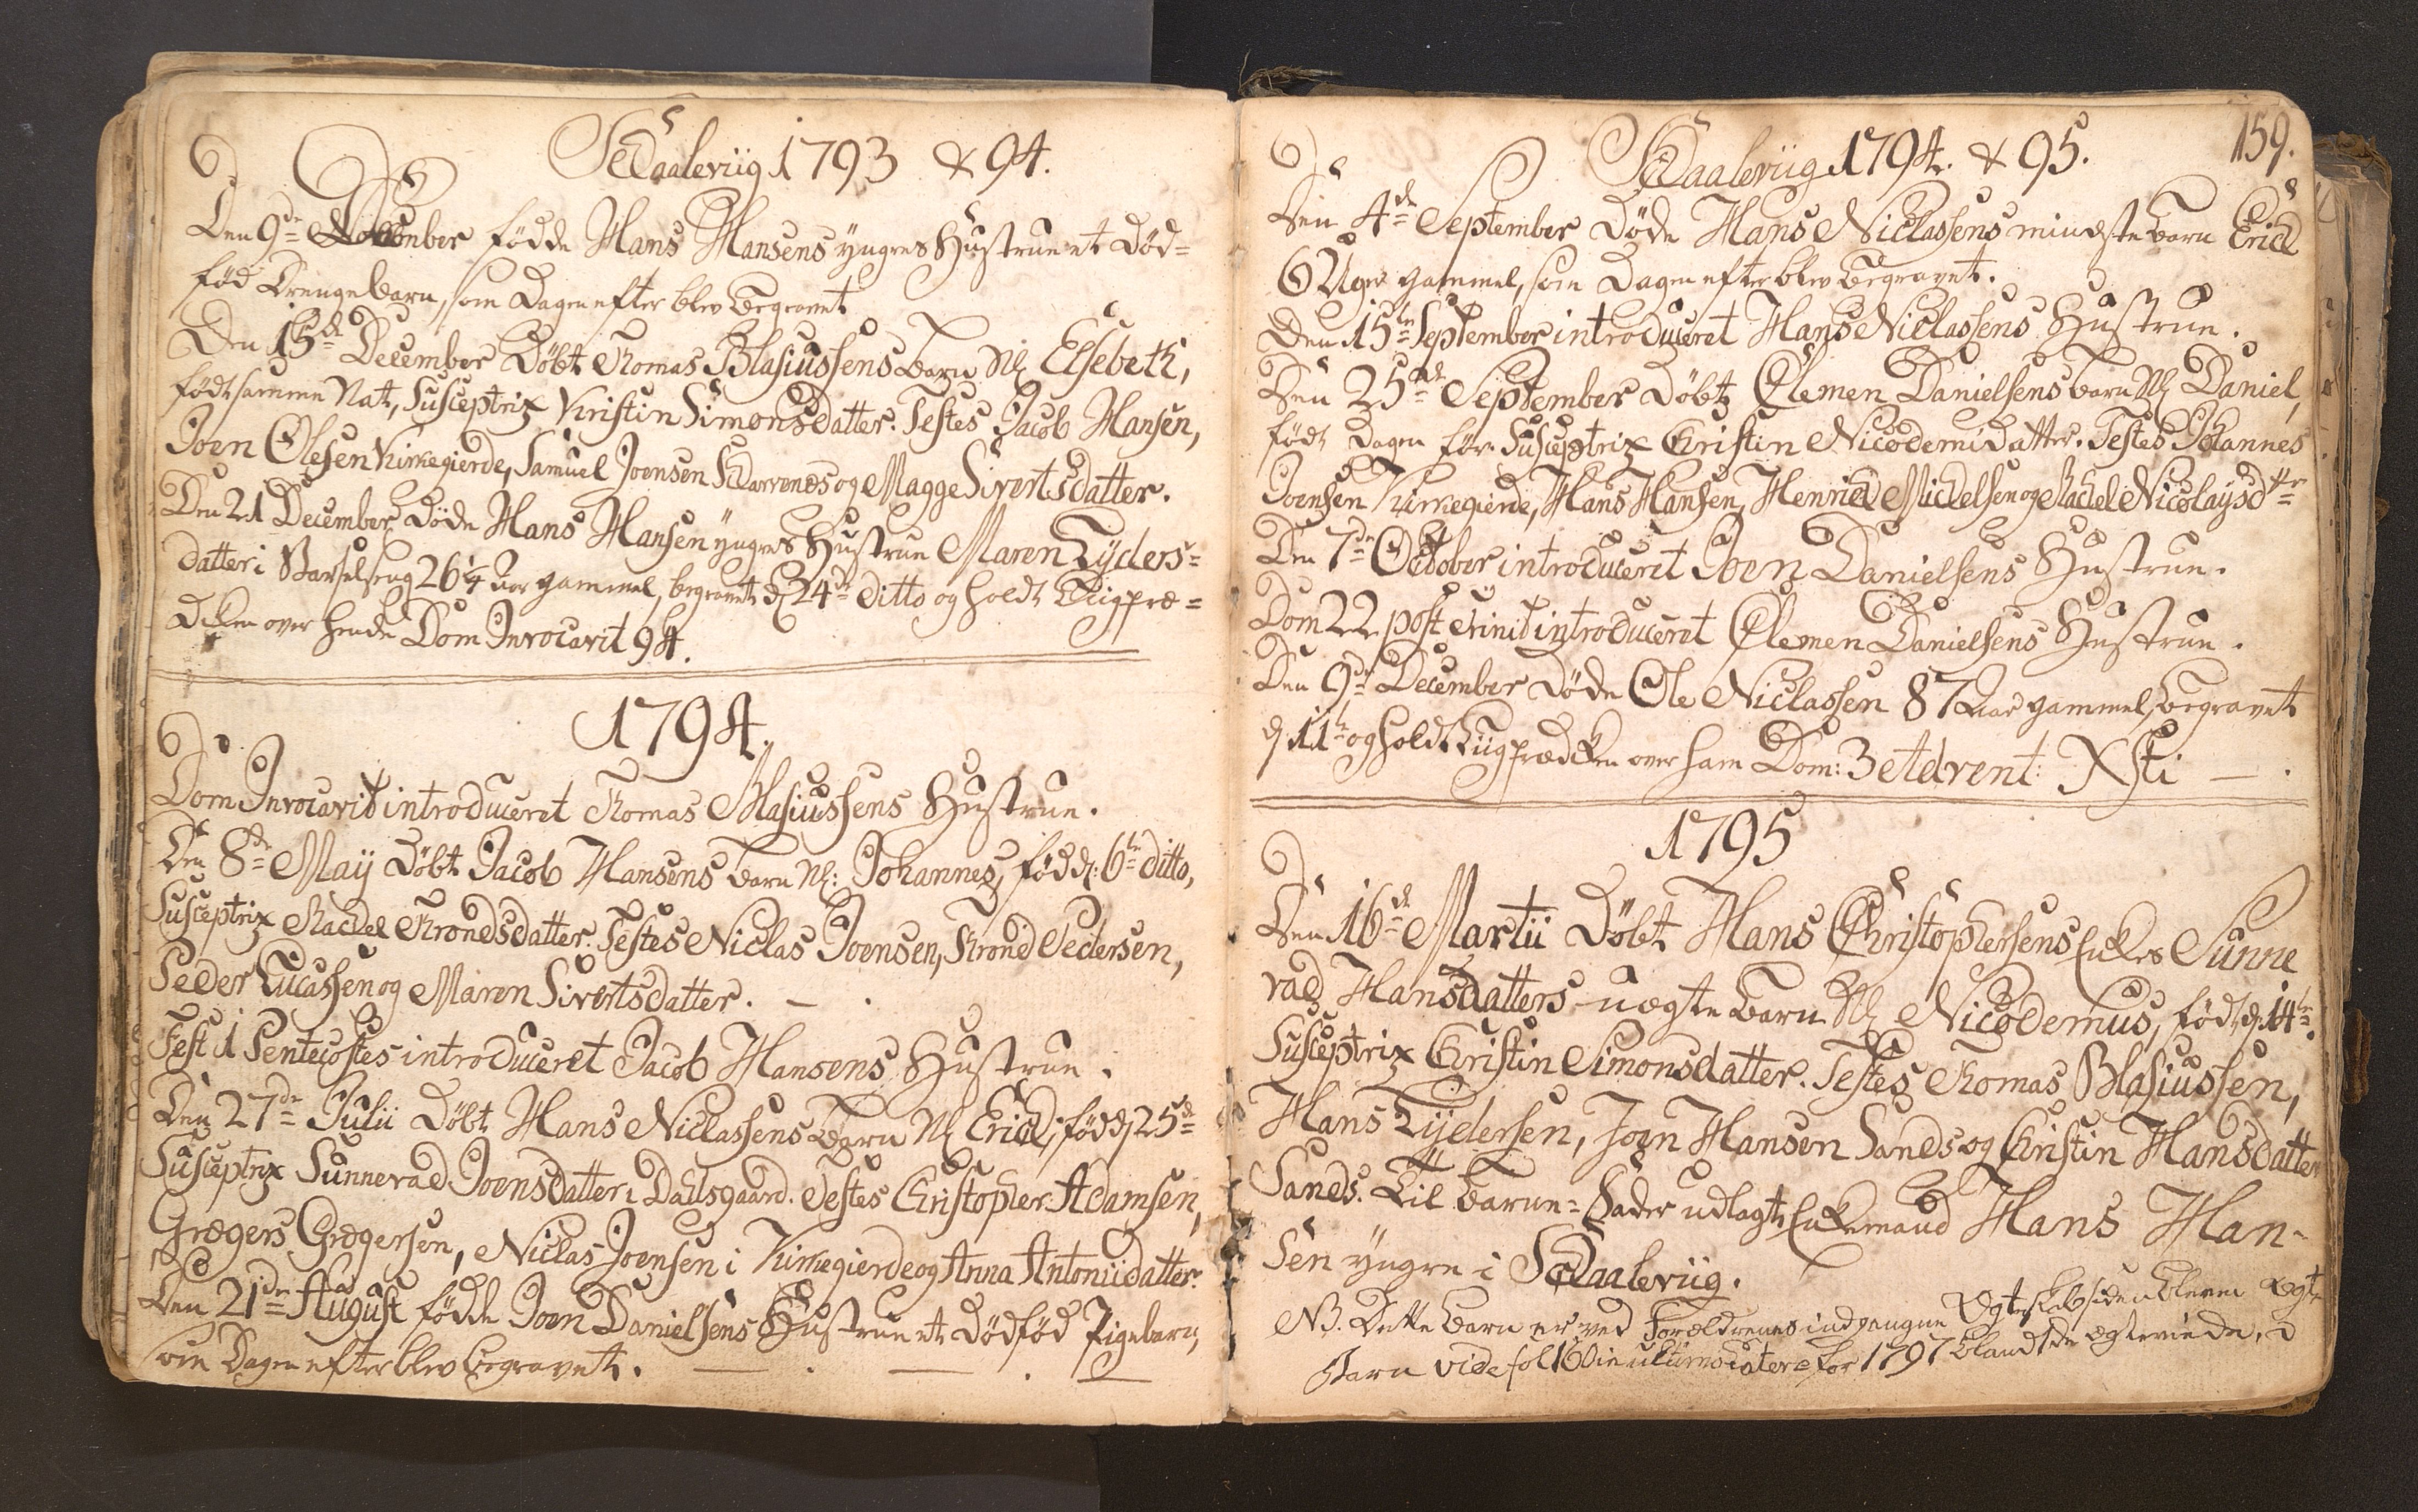 Sckaalevüg 1793 & 94.
Den 9de November fødde Hans Hansens yngres Hustrue et Død=
fød Drengebarn, som Dagen efter blev begravet
Den 15de December Døbt Thomas Blasiussens barn Nl Elsebeth,
født samme Nat, Susceptrix Kristin Simonsdatter. Testes Jacob Hansen,
Joen Olesen Kirkegierde, Samuel Joensen og Magge Sivertsdatter.
Den 21 December Døde Hans Hansen yngres Hustrue Maren Zyders=
datter i Barselseng 26 1/4 Aar gammel, begravet d 24de ditto og holdt Liigpræ=
diken over hende Dom Invocavit 94.
1794.
Dom Invocavit introduceret Thomas Blasiussens Hustrue.
Den 8de Maÿ Døbt Jacob Hansens barn Nl: Johannes, fød d: 6te ditto,
Susceptrix Rachel Throndsdatter. Testes Niclas Joensen, Thrond Pedersen,
Peder Lucassen og Maren Sivertsdatter.
Fest 1 Pentecostes introduceret Jacob Hansens Hustrue.
Den 27de Julii Døbt Hans Niclassens barn Nl Erich, fød d 25de
Susceptrix Sunnevad Joensdatter i Dahlsgaard. Testes Christopher Adamsen,
Grægers Grægersen, Niclas Joensen i Kirkegierde og Anna Antoniidatter.
Den 21de August fødde Joen Danielsens Hustrue et dødfød Pigebarn,
som Dagen efter blev begravet.
Sckaalevüg 1794. & 95.
159.
Den 4de September Døde Hans Niclassens mindste barn Erich
6 Uger gammel, som Dagen efter blev begravet.
Den 15te September introduceret Hans Niclassens Hustrue.
Den 25de September Døbt Clemen Danielsens barn Nl Daniel,
født Dagen før. Susceptrix Christin Nicodemidatter. Testes Johannes
Joensen Kirkegierde, Hans Hansen, Henrich Michelsen og Rachel Nicolaysdtr
Den 7de October introduceret Joen Danielsens Hustrue.
Dom 22 post Trinit introduceret Clemen Danielsens Hustrue.
Den 9de December Døde Ole Niclassen 87 Aar gammel, begravet
d 11te og holdt Liigprædiken over ham Dom: 3 Advent: Xsti
1795
Den 16de Martii Døbt Hans Christophersens Enkes Sunne
vad Hansdatters uægte barn Nl Nicodemus, fødd d. 14te.
Susceptrix Christin Simonsdatter. Testes Thomas Blasiussen,
Hans Zÿdersen, Joen Hansen Sands og Christin Hansdatter
Sands. Til Barne=Fader udlagt Enkemand Hans Han-
sen yngre i Sckaalevüg.
NB. Dette barn er ved Forældrenes indgangne Ægteskab siden bleven Ægte
Barn vide fol 160 in ultimo latere for 1797 blandt de Ægteviede.